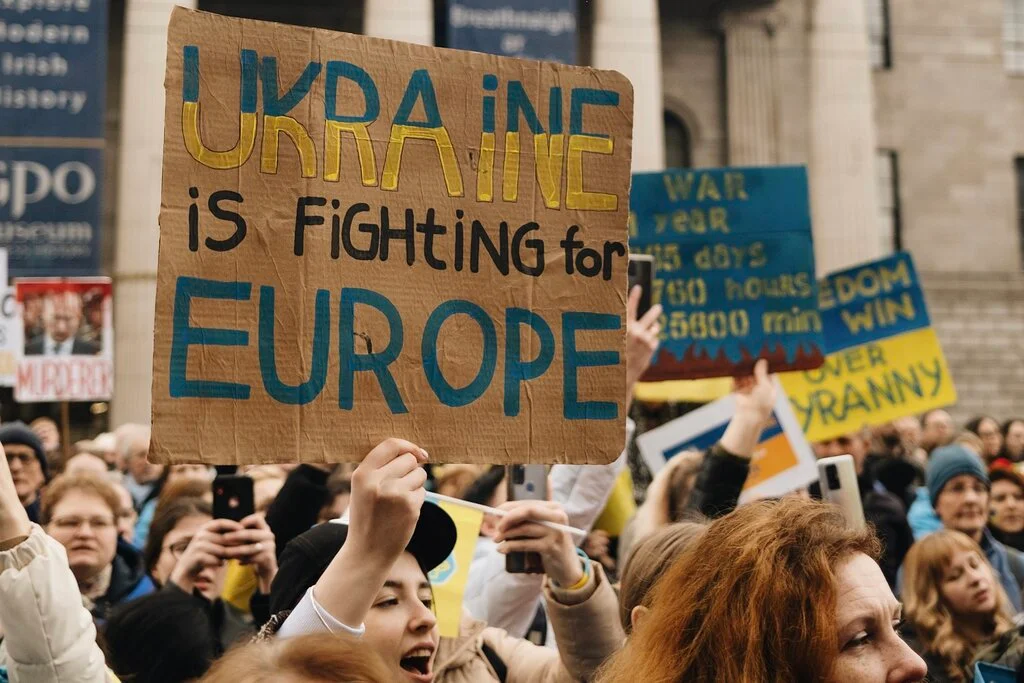 odern
Irish
istory
GPO
useum
Breathnaigh
MURDERER
UKRAiNE
iS FiGHtiNG for
EUROPE
WAR
YEAR
65 days
760 hours
25600 min
EDOM
WIN
OVER
YRANNY